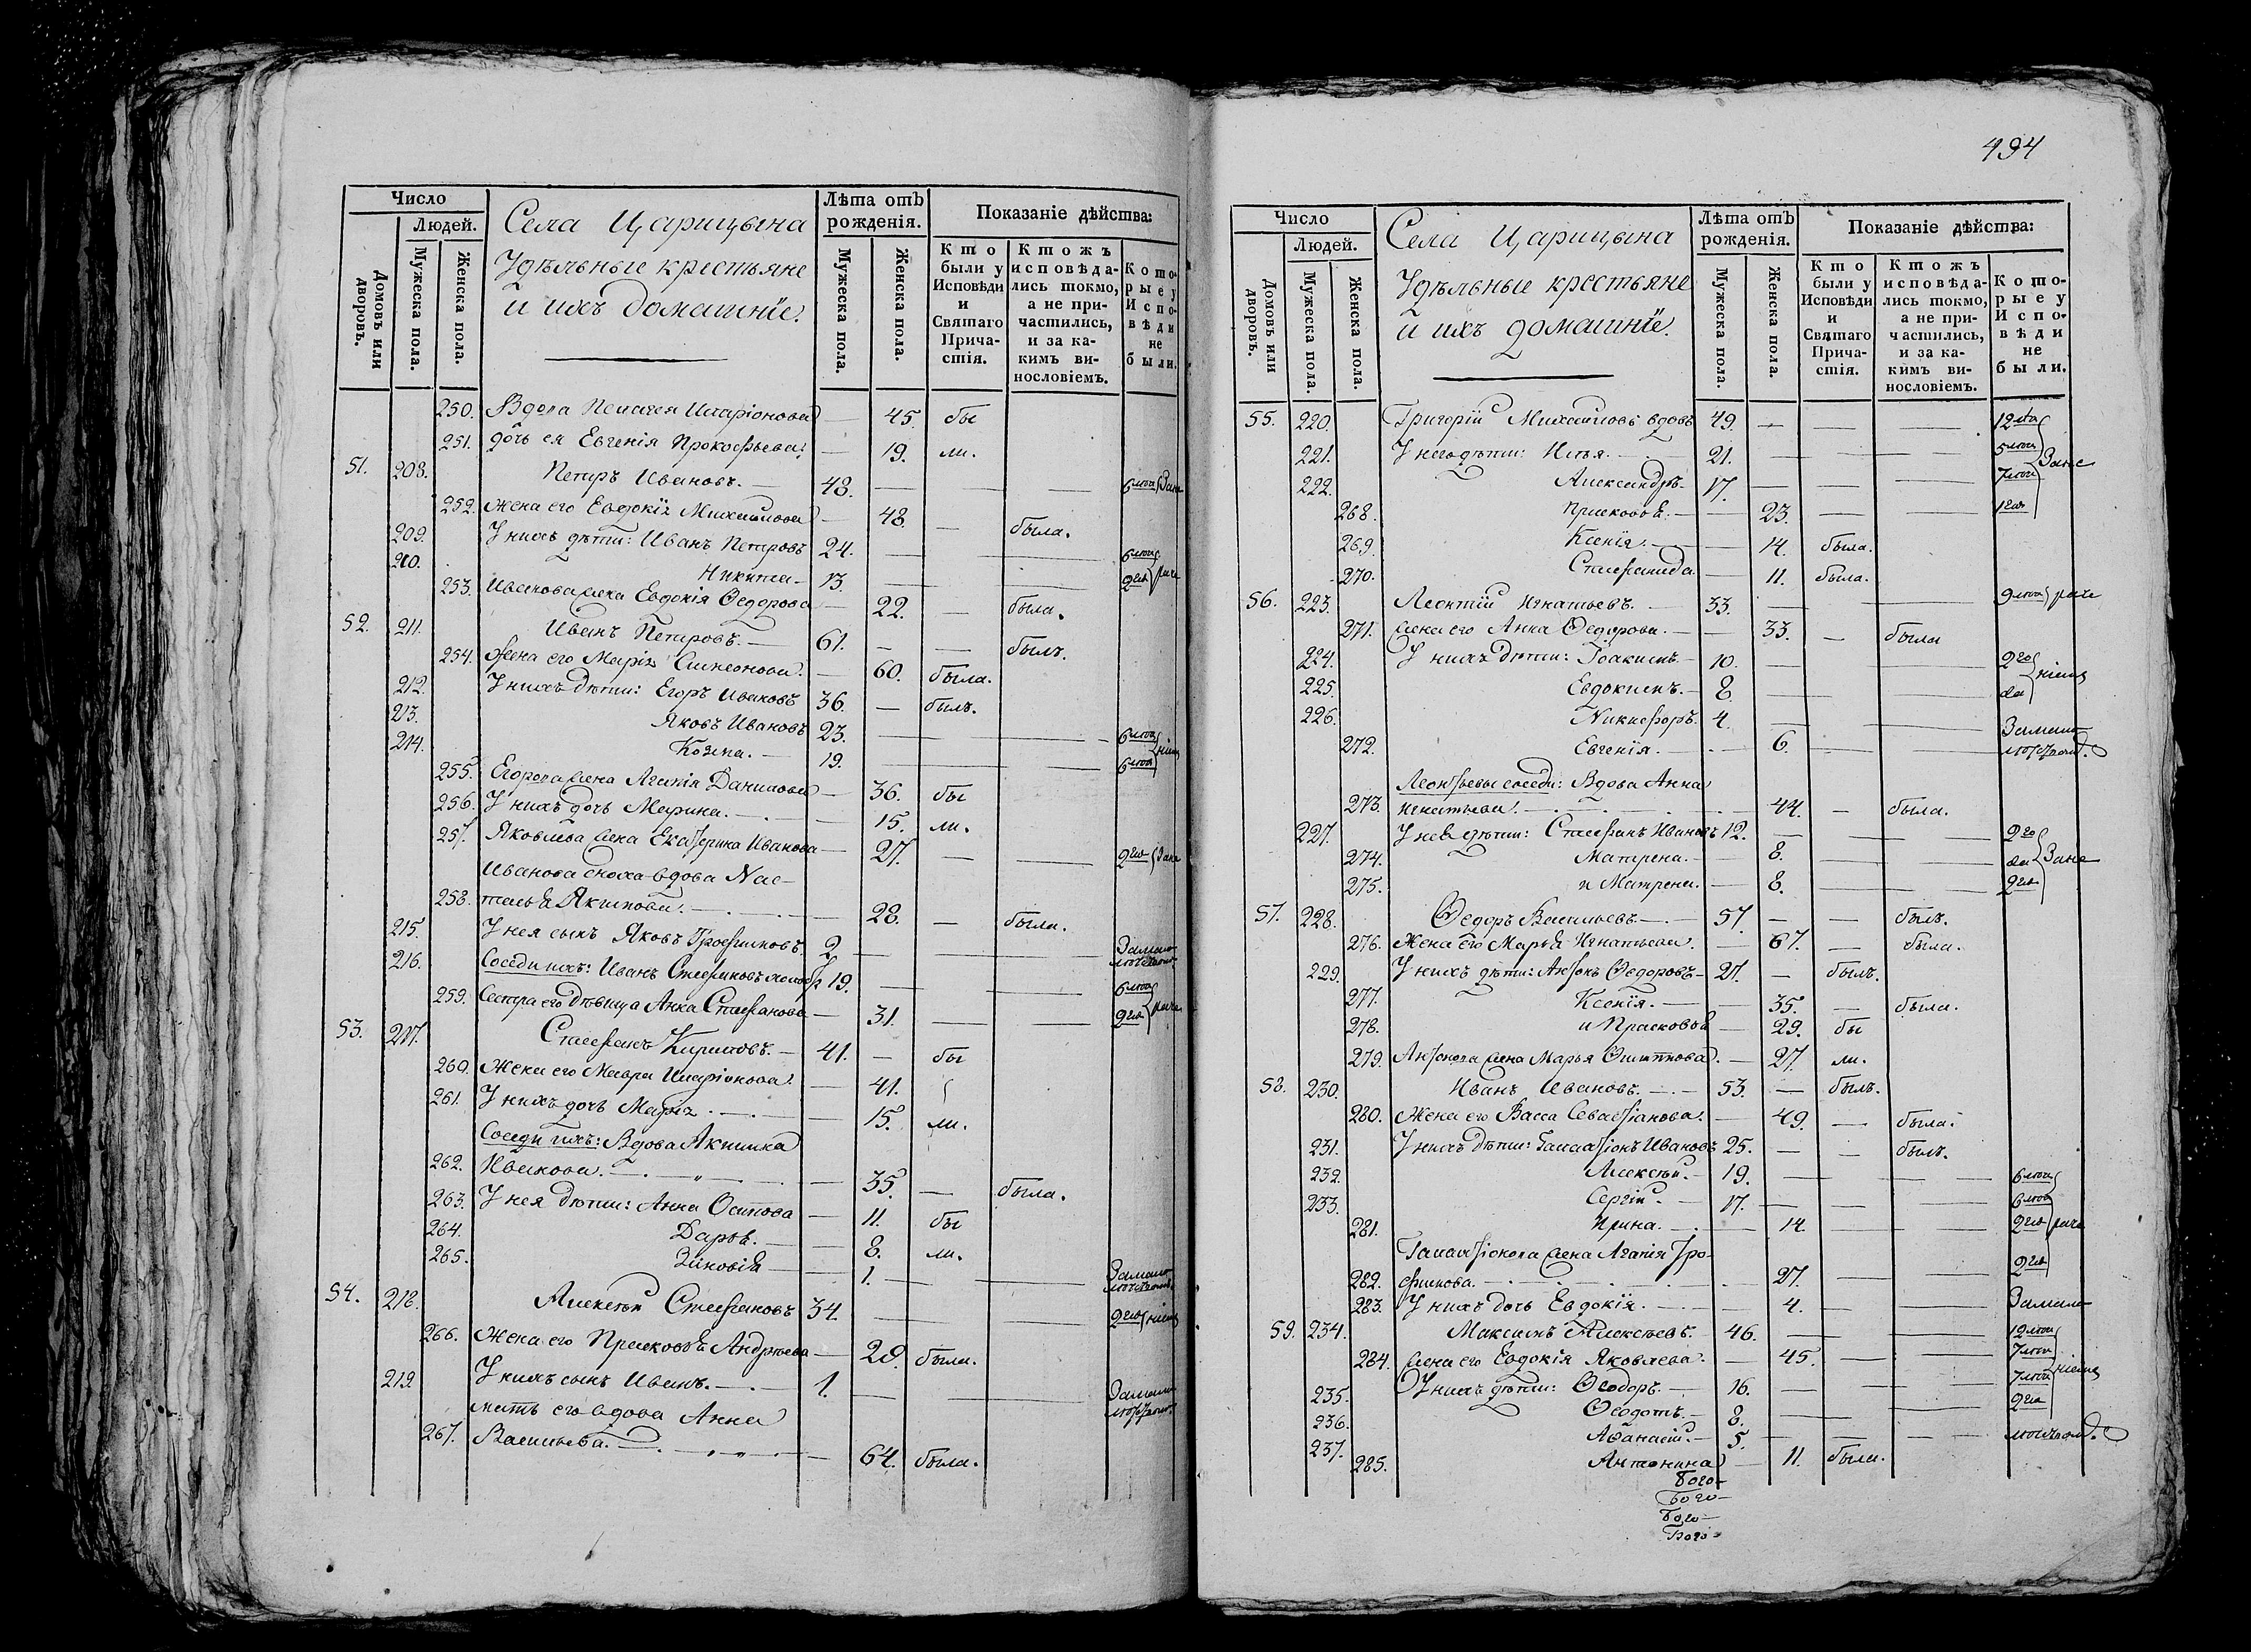 Число
Людей.
Домовъ или дворовъ.
Мужеска пола.
Женска пола.
Села Царицына
Удѣльные крестьяне
и ихъ домашнїе.
Лѣта отъ рожденія.
Мужеска пола.
Женска пола.
Показаніе дѣйства:
Кто были у Исповѣди и Святаго Причастія.
Ктожъ исповѣдались токмо, а не причастились, и за какимъ винословіемъ.
Которые у Исповѣди не были.
250. Вдова Пелагея Иларіонова — 45. бы
251. дочь ея Евгенія Прокофьева — 19. ли.
51. 208. Петръ Ивановъ. — 48.
252. Жена его Евдокія Михаилова — 48. — была.
209. У нихъ дѣти: Иванъ Петровъ 24.
210. Никита — 13.
253. Иванова жена Евдокія Ѳедорова — 22. — была.
52. 211. Иванъ Петровъ. — 61. — — былъ.
254. Жена его Марія Симеонова. — 60. была.
212. У нихъ дѣти: Егоръ Ивановъ 36. — былъ.
213. Яковъ Ивановъ 23.
214. Козма. — 19.
255. Егорова жена Агапія Данилова — 36. бы
256. У нихъ дочь Марина. — 15. ли.
257. Яковлева жена Екатерина Иванова — 27.
Иванова сноха вдова Нас-
258. тасья Якимова. — 28. — была.
215. У нея сынъ Яковъ Трофимовъ. 2
216. Соседи ихъ: Иванъ Стефановъ холостъ 19.
259. Сестра его дѣвица Анна Стефанова — 31.
53. 217. Стефанъ Кириловъ. — 41. — бы
260. Жена его Мавра Иларіонова. — 41.
261. У нихъ дочь Марія. — 15. ли.
Соседи ихъ: Вдова Акилина
262. Иванова. — 35. — была.
263. У нея дѣти: Анна Осипова — 11. бы
264. Дарья. — 8. ли.
265. Зиновія — 1.
54. 218. Алексѣй Стефановъ 34.
266. Жена его Прасковья Андреева — 28. была.
219. У нихъ сынъ Иванъ. — 1.
мать его вдова Анна
267. Васильева. — 64. была.
494
Число
Людей.
Домовъ или дворовъ.
Мужеска пола.
Женска пола.
Села Царицына
Удѣльные крестьяне
и ихъ домашнїе.
Лѣта отъ рожденія.
Мужеска пола.
Женска пола.
Показаніе дѣйства:
Кто были у Исповѣди и Святаго Причастія.
Ктожъ исповѣдались токмо, а не причастились, и за какимъ винословіемъ.
Которые у Исповѣди не были.
55. 220. Григорій Михаиловъ вдовъ 49.
221. У него дѣти: Илья. — 21.
222. Александръ — 17.
268. Прасковья. — 23.
269. Ксенія. — 14. была.
270. Стефанида — 11. была.
56. 223. Леонтій Игнатьевъ. — 33.
271. жена его Анна Ѳедорова. — 33. — была
224. У нихъ дѣти: Іоакимъ — 10.
225. Евдокимъ. — 8.
226. Никифоръ. 4.
272. Евгенія. — 6.
Леонтьевы соседи: Вдова Анна
273. Игнатьева. — 44. — была.
227. У нея дѣти: Стефанъ Ивановъ 12.
274. Матрена. — 8.
275. и Матрена. — 8.
57. 228. Ѳедоръ Васильевъ. — 57. — — былъ.
276. Жена его Марья Игнатьева. — 67. — была.
229. У нихъ дѣти: Антонъ Ѳедоровъ — 27. — былъ.
277. Ксенія. — 35. — была.
278. и Прасковья — 29. бы
279. Антонова жена Марья Филиппова. — 27. ли.
58. 230. Иванъ Ивановъ. — 53. — былъ.
280. Жена его Васса Севастіанова. — 49. — была.
231. У нихъ дѣти: Галактіонъ Ивановъ 25. — — былъ.
232. Алексѣй. — 19.
233. Сергій. — 17.
281. Ирина. — 14.
Галактіонова жена Агапія Тро-
282. фимова. — 27.
283. У нихъ дочь Евдокія. — 4.
59. 234. Максимъ Алексѣевъ. — 46.
284. жена его Евдокія Яковлева. — 45.
235. У нихъ дѣти: Ѳеодоръ. — 16.
236. Ѳеодотъ. — 8.
237. Аѳанасій. — 5.
285. Антонина — 11. была.
Бого-
Бого-
Бого-
Бого-